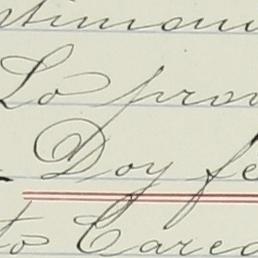 stimoni
To prov
Doy fe
to Cared